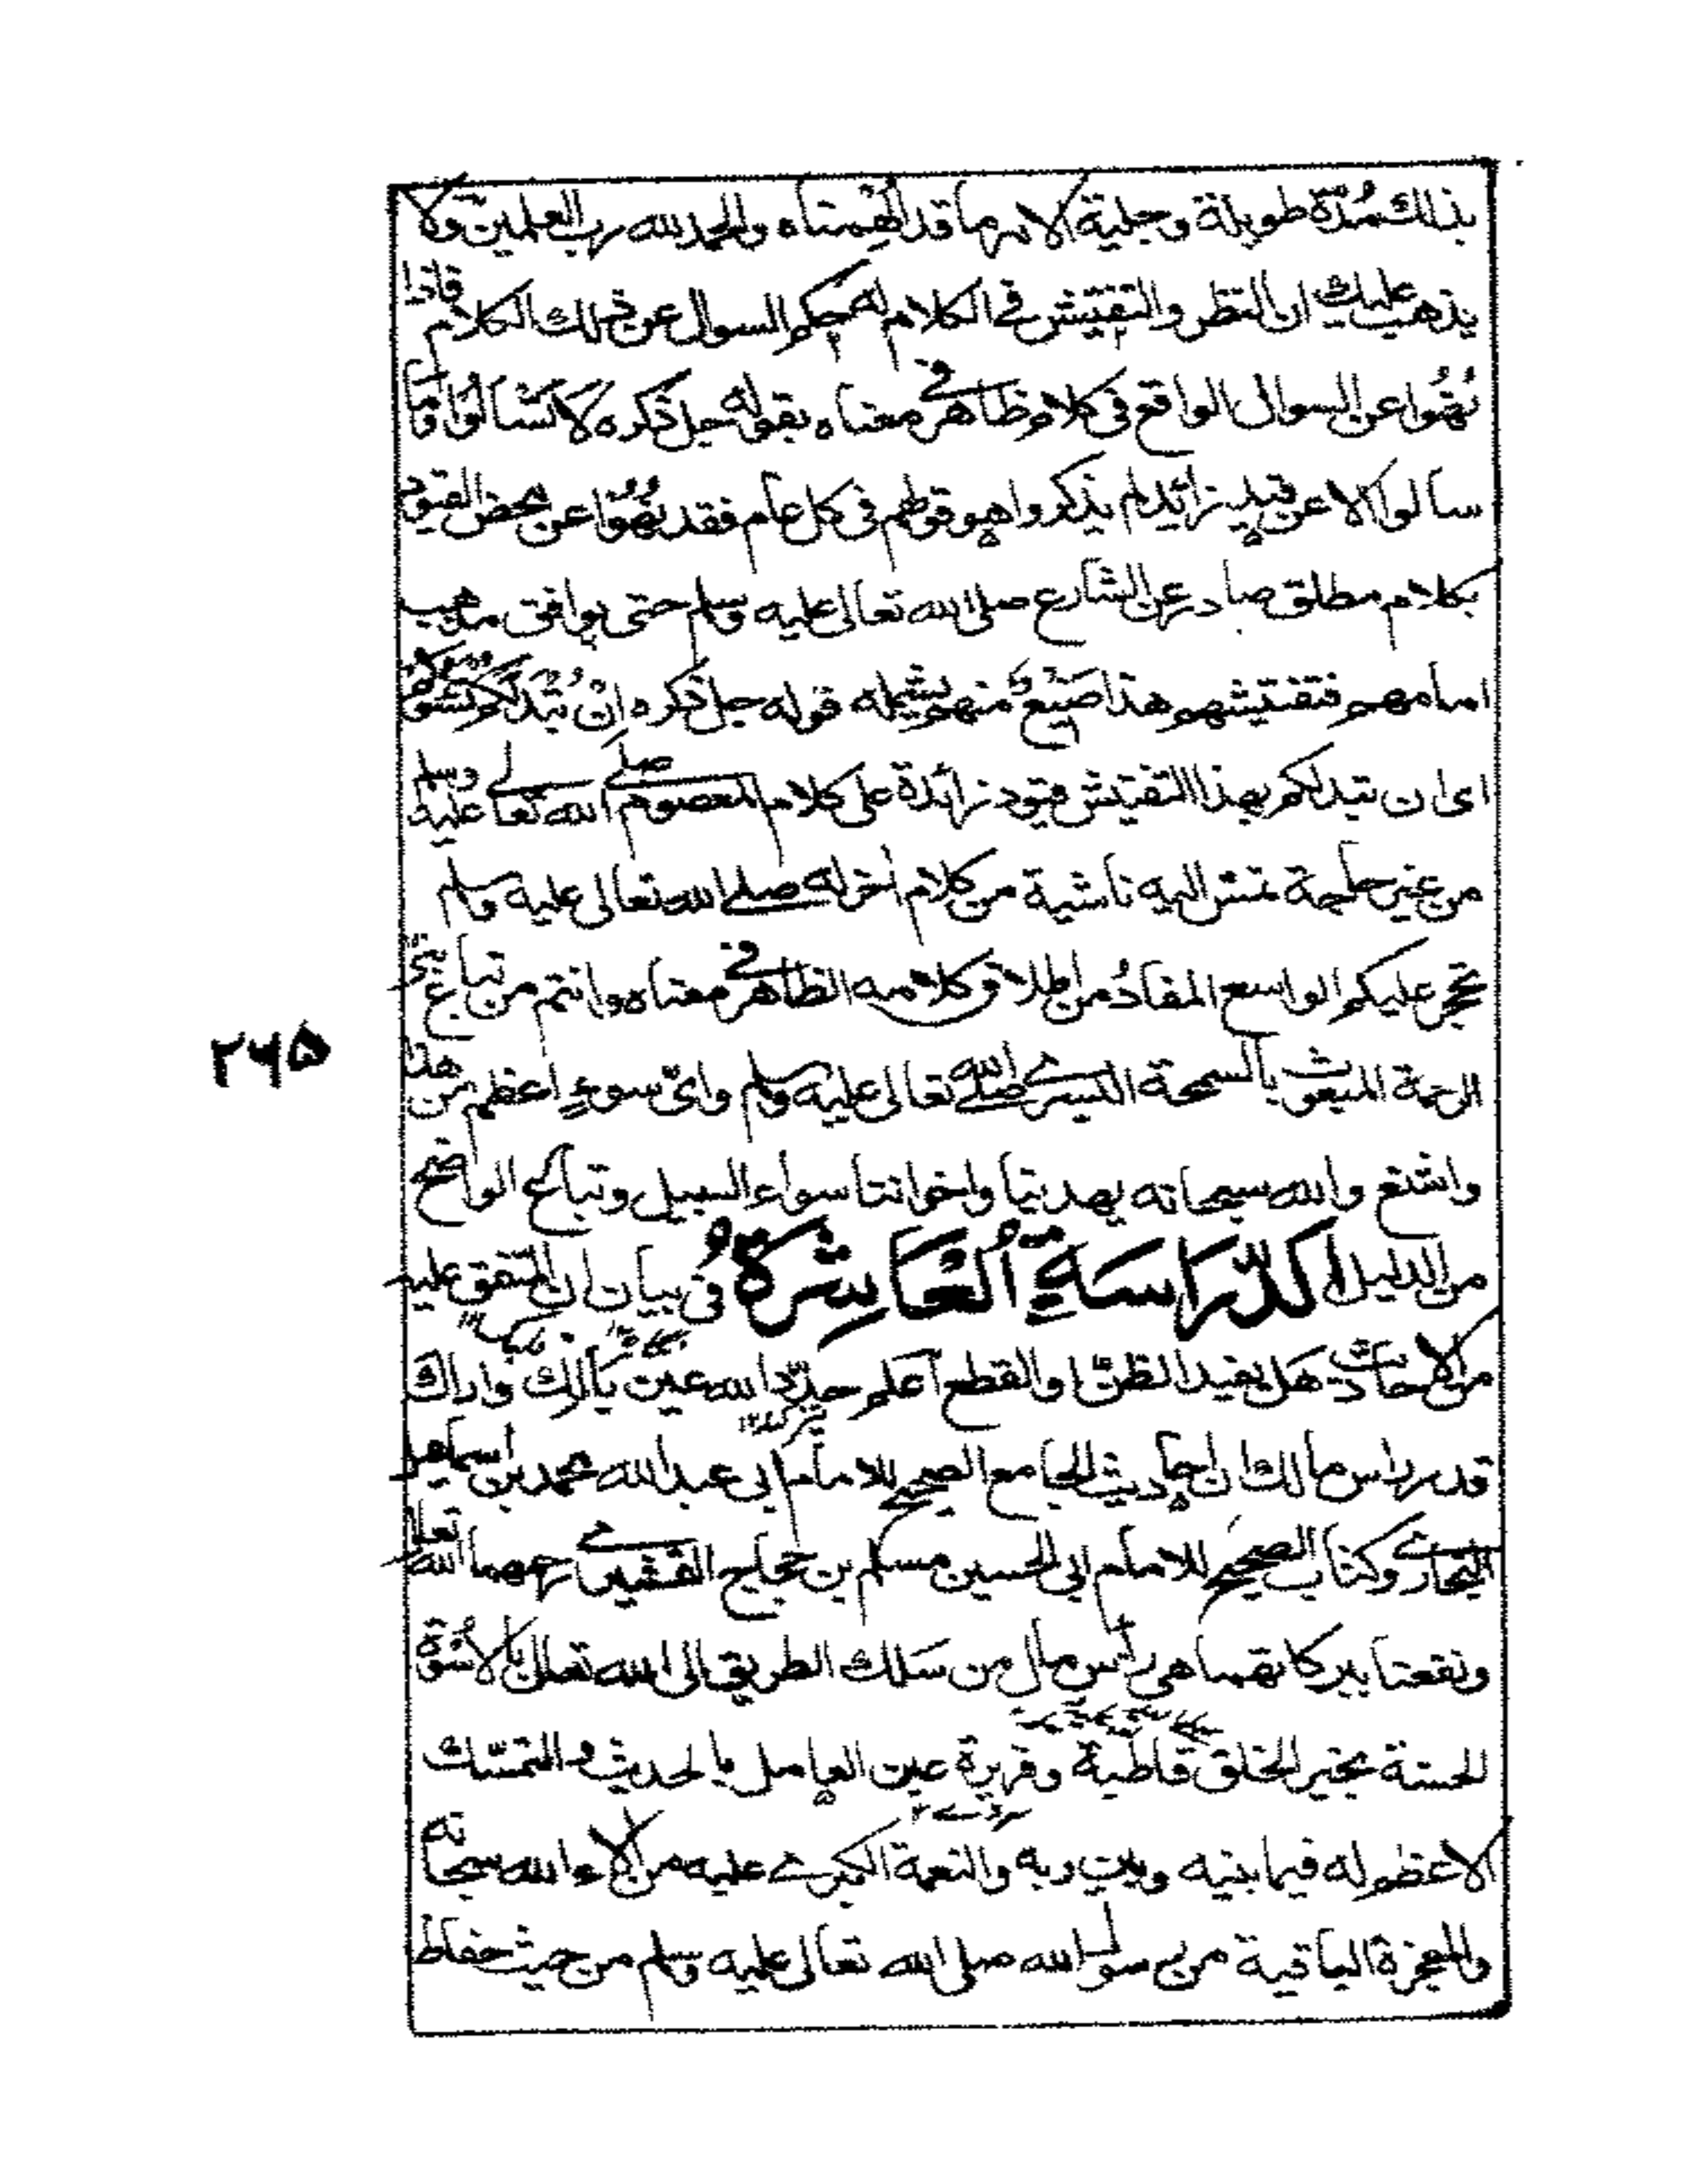 بذلك مُدّة طويلة وجلية الامر ما قد أُلهِمناه والحمد لله رب العلمين ولا
يذهب عليك ان النظر والتفتيش في الكلام له حكم السوال عن ذلك الكلام فاذا
نُهُوا عن السوال الواقع في كلام ظاهر في معناه بقوله جل ذكره لا تسْألُوا وما
سالوا الا عن قيد زائد لم يذكر وهو قولهم في كل عام فقد نُهُوا عن بحض القيود
بكلام مطلق صادر عن الشارع صلى الله تعالى عليه وسلم حتى يوافق مذهب
امامهم فتفتيشهم هذا صنيعٌ منهم يشمله قوله جل ذكره اِنْ تُبْدَ لَكُمْ تَسُؤْكُمْ
اى ان تبد لكم بهذا التفتيش قيود زائدة على كلام المعصوم صلے الله تعالى عليه وسلم
من غير حاجة تمس اليه ناشية من كلام أخر له صلے الله تعالى عليه وسلم
تحجر عليكم الواسع المفادُ من اطلاق كلامه الظاهر في معناه وانتم من تباع نبى
الرحمة المبعوث بالسمحة اليسرے صلے الله تعالى عليه وسلم واىّ سوءٍ اعظم من هذا
واشنع والله سبحانه يهدينا واخواننا سواء السبيل وتباع الواضح
من الدليل الدّرَاسَةُ الْعَاشِرَةُ في بيان ان المتفق عليه
من الاحاديث هل يفيد الظن او القطع اعلم جدّد الله عين بالك واراك
قدر راس مالك ان احاديث الجامع الصحيح للامام ابى عبد الله محمد بن اسماعيل
البخارے وكتاب الصحيح للامام ابى الحسين مسلم بن حجاج القشيرے رحمهما الله تعالى
ونفعنا ببركاتهما هي رأس مال من سَلك الطريق الى الله تعالى بالاسْوة
الحسنة بخير الخلق قاطبة وقريرة عين العامل بالحديث والتمسّك
الاعظم له فيما بينه وبين ربه والنعمة الكبرے عليه من الاء الله سبحانه
والمعجزة الباقية من رسول الله صلى الله تعالى عليه وسلم من حيث حفاظ
۲۶۵